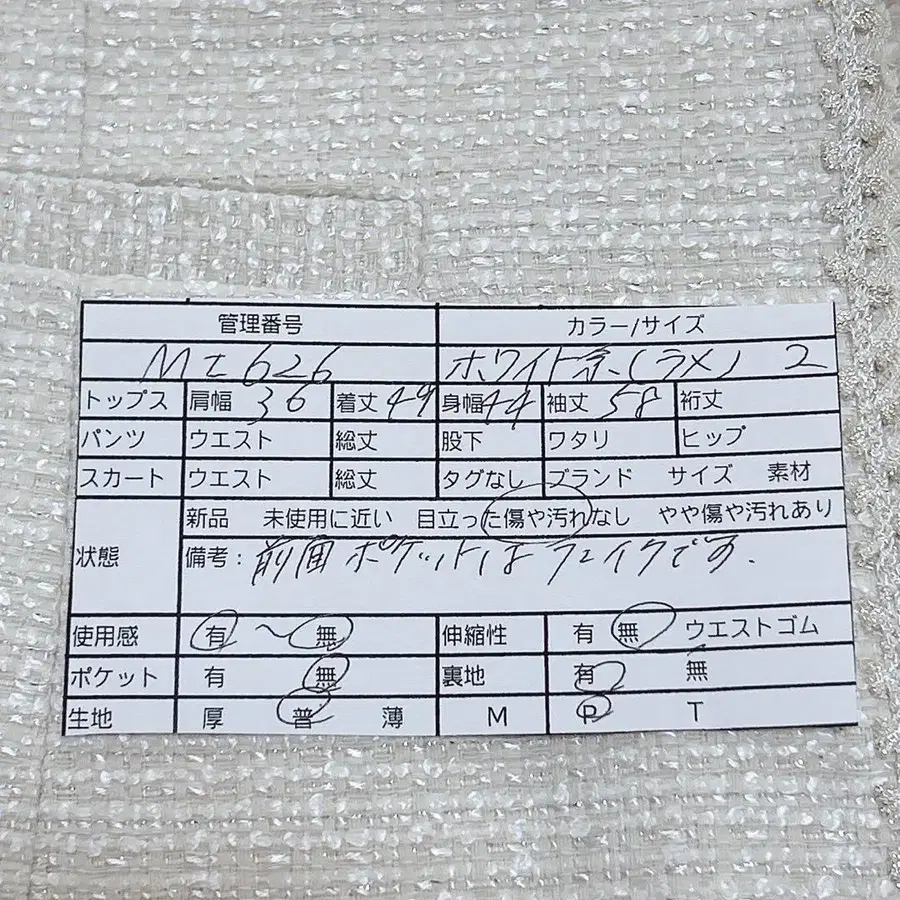 管理番号 カラー/サイズ
Mエ626 ホワイト系(ラメ) 2
トップス 肩幅 36 着丈 49 身幅 44 袖丈 58 裄丈
パンツ ウエスト 総丈 股下 ワタリ ヒップ
スカート ウエスト 総丈 タグなし ブランド サイズ 素材
新品 未使用に近い 目立った傷や汚れなし やや傷や汚れあり
状態 備考: 前面ポケットはフェイクです.
使用感 有 〜 無 伸縮性 有 無 ウエストゴム
ポケット 有 無 裏地 有 無
生地 厚 普 薄 M P T